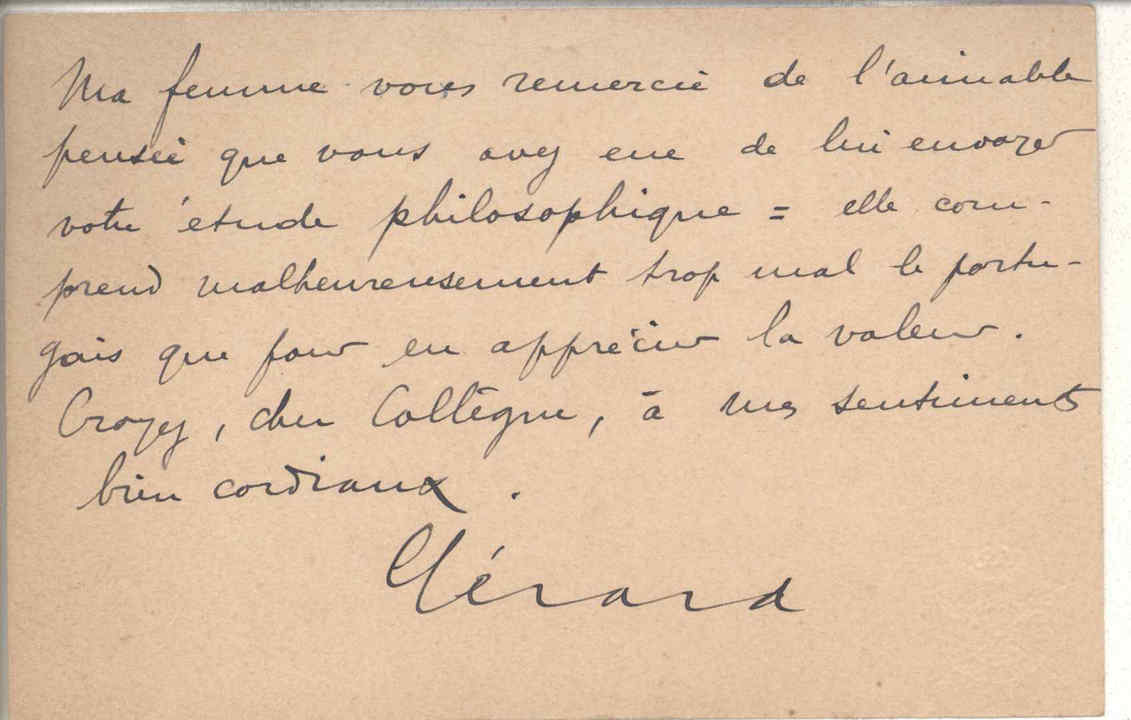 Ma femme vous remercie de l'aimable
pensée que vous avez eue de lui envoyer
votre étude philosophique = elle com-
prend malheureusement trop mal le portu-
gais que pour en apprécier la valeur.
Croyez, cher Collègue, à mes sentiments
bien cordiaux.
Gérard